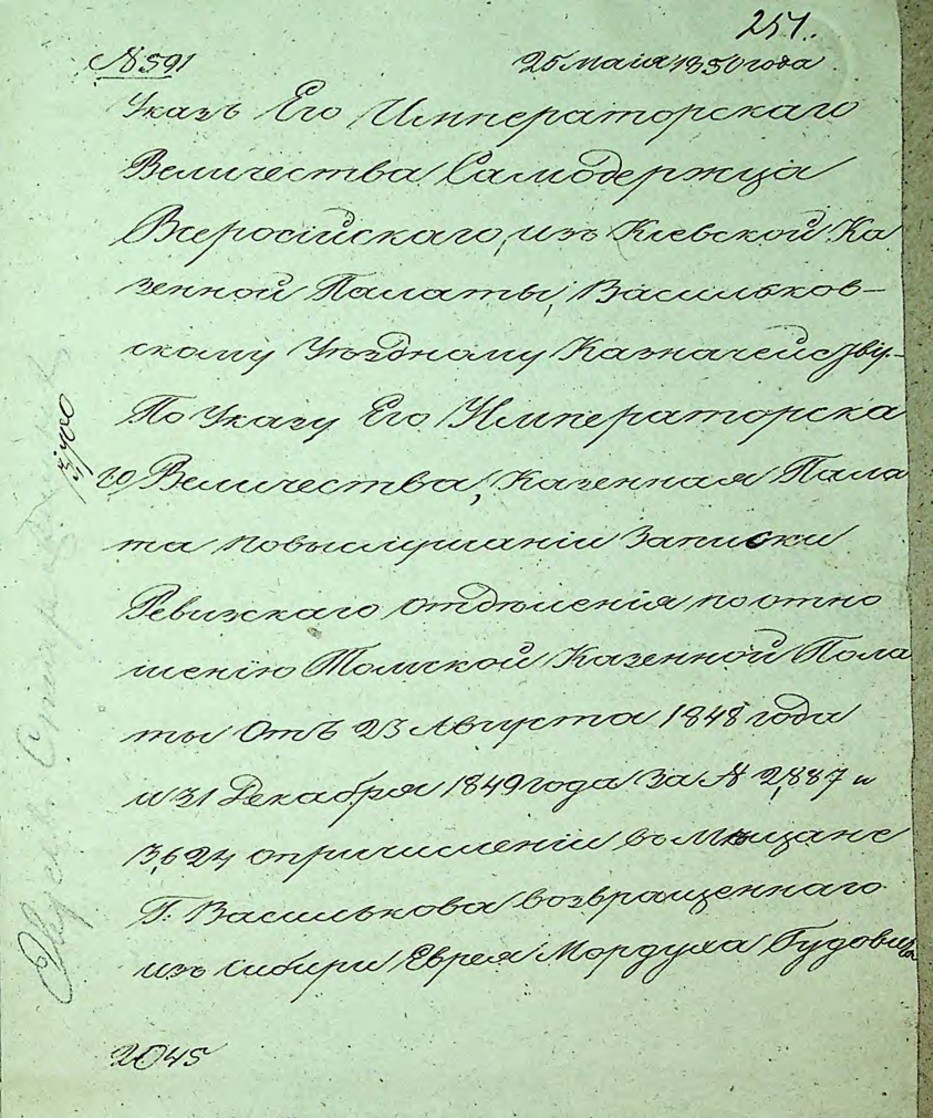 251.
№ 591
25 Маія 1850 года
Указъ Его Императорскаго
Величества Самодержца
Всеросійскаго, изъ Кіевской Ка
зенной Палаты, Васильков-
скому Уѣздному Казначейству.
По Указу Его Императорска
го Величества, Казенная Пала
та повыслушаніи Записки
Ревизскаго отдѣленія поотно
шенію Томской Казенной Пола
ты Отъ 23 Августа 1848 года
и 31 Декабря 1849 года За № 2,887 и
3,624 опричисленіи въ Мѣщане
Г. Василькова возвращеннаго
изъ Сибири Еврея Мордуха Гудовича
2045